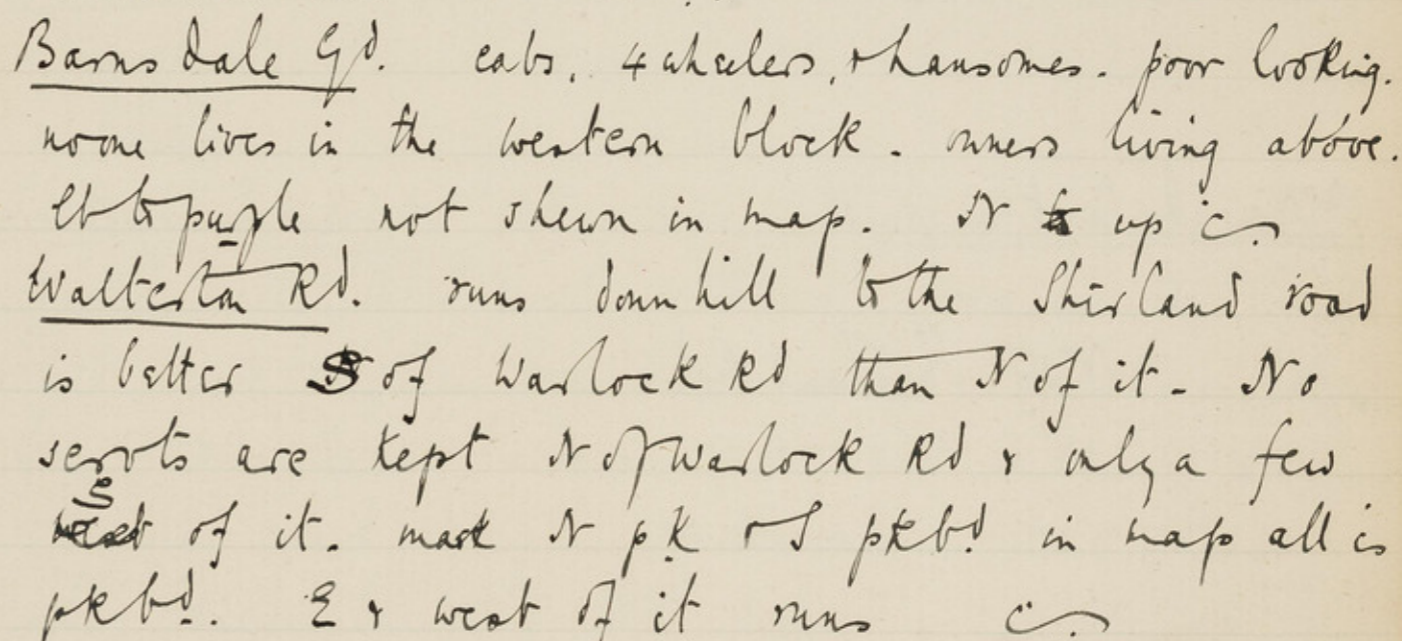 Barnsdale Yd. cabs, 4 wheelers, & hansomes. poor looking.
noone lives in the western block. owners living above.
lb to purple not shewn in map. N to up
Walterton Rd. runs down hill to the Shirland road
is better S of Warlock Rd than N of it. No
servts are kept N of Warlock Rd & only a few
S of it. mark N pk & S pkbd in map all is
pkbd. E & west of it runs